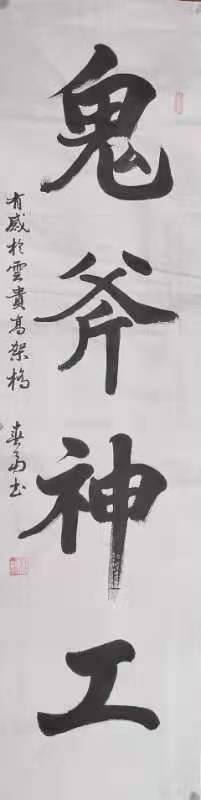 鬼斧神工
有感於雲貴高架橋
春
书